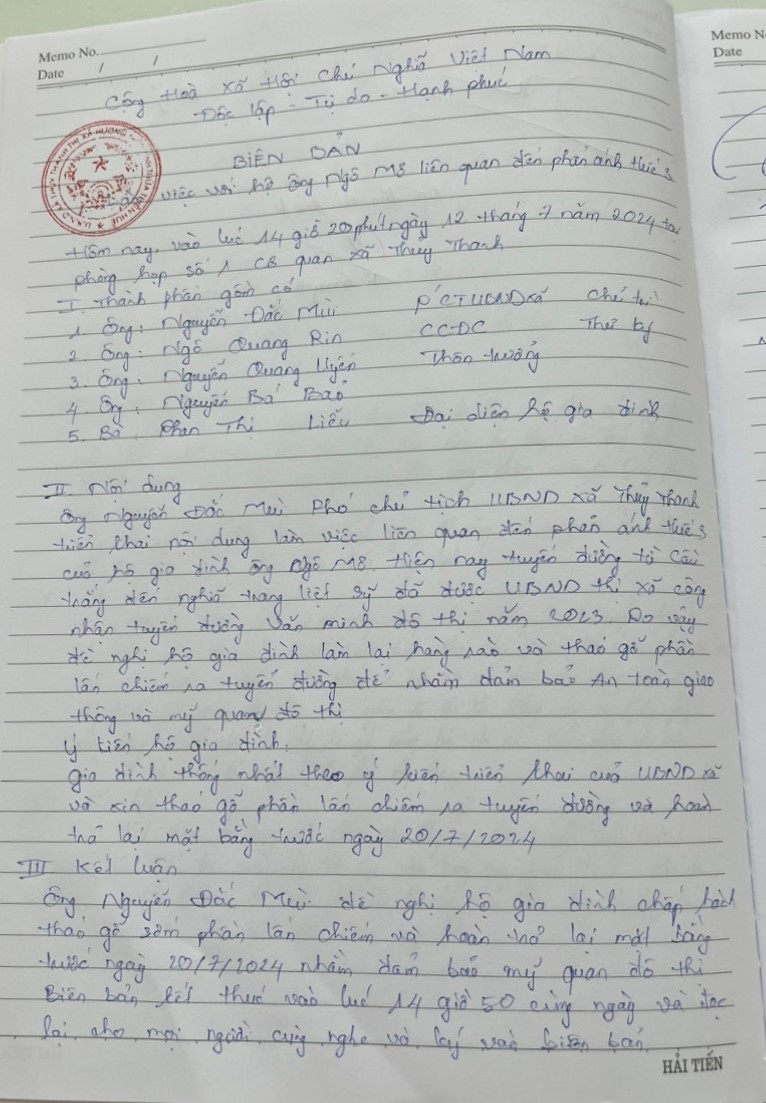 Memo No.
Date / /
Memo N
Date
Cộng Hoà Xã Hội Chủ Nghĩa Việt Nam
Độc lập - Tự do - Hạnh phúc
BIÊN BẢN
việc với hộ ông Ngô Mỡ liên quan đến phản ánh Hué S
Hôm nay, vào lúc 14 giờ 20 phút ngày 12 tháng 7 năm 2024 tại
phòng họp số 1 CB quan xã Thủy Thanh
I. Thành phần gồm có
1. Ông: Nguyễn Đắc Mùi P'CTUBND xã Chủ trì
2. Ông: Ngô Quang Rin CCĐC Thư ký
3. Ông: Nguyễn Quang Uyên Thôn trưởng
4. Ông: Nguyễn Bá Bảo
5. Bà: Phan Thị Liễu Đại diện hộ gia đình
II. Nội dung
Ông Nguyễn Đắc Mùi Phó chủ tịch UBND xã Thủy Thanh
triển khai nội dung làm việc liên quan đến phản ánh Hué S
của hộ gia đình ông Ngô Mỡ. Hiện nay tuyến đường từ Cầu
trắng đến nghĩa trang liệt sỹ đã được UBND thị xã công
nhận tuyến đường Văn minh đô thị năm 2023. Do vậy
đề nghị hộ gia đình làm lại hàng rào và tháo gỡ phần
lấn chiếm ra tuyến đường để nhằm đảm bảo An toàn giao
thông và mỹ quan đô thị
Ý kiến hộ gia đình:
Gia đình thống nhất theo ý kiến triển khai của UBND xã
và xin tháo gỡ phần lấn chiếm ra tuyến đường và hoàn
trả lại mặt bằng trước ngày 20/7/2024
III Kết luận
Ông Nguyễn Đắc Mùi đề nghị hộ gia đình chấp hành
tháo gỡ sớm phần lấn chiếm và hoàn trả lại mặt bằng
trước ngày 20/7/2024 nhằm đảm bảo mỹ quan đô thị
Biên bản kết thúc vào lúc 14 giờ 50 cùng ngày và đọc
lại cho mọi người cùng nghe và ký vào biên bản.
HẢI TIẾN